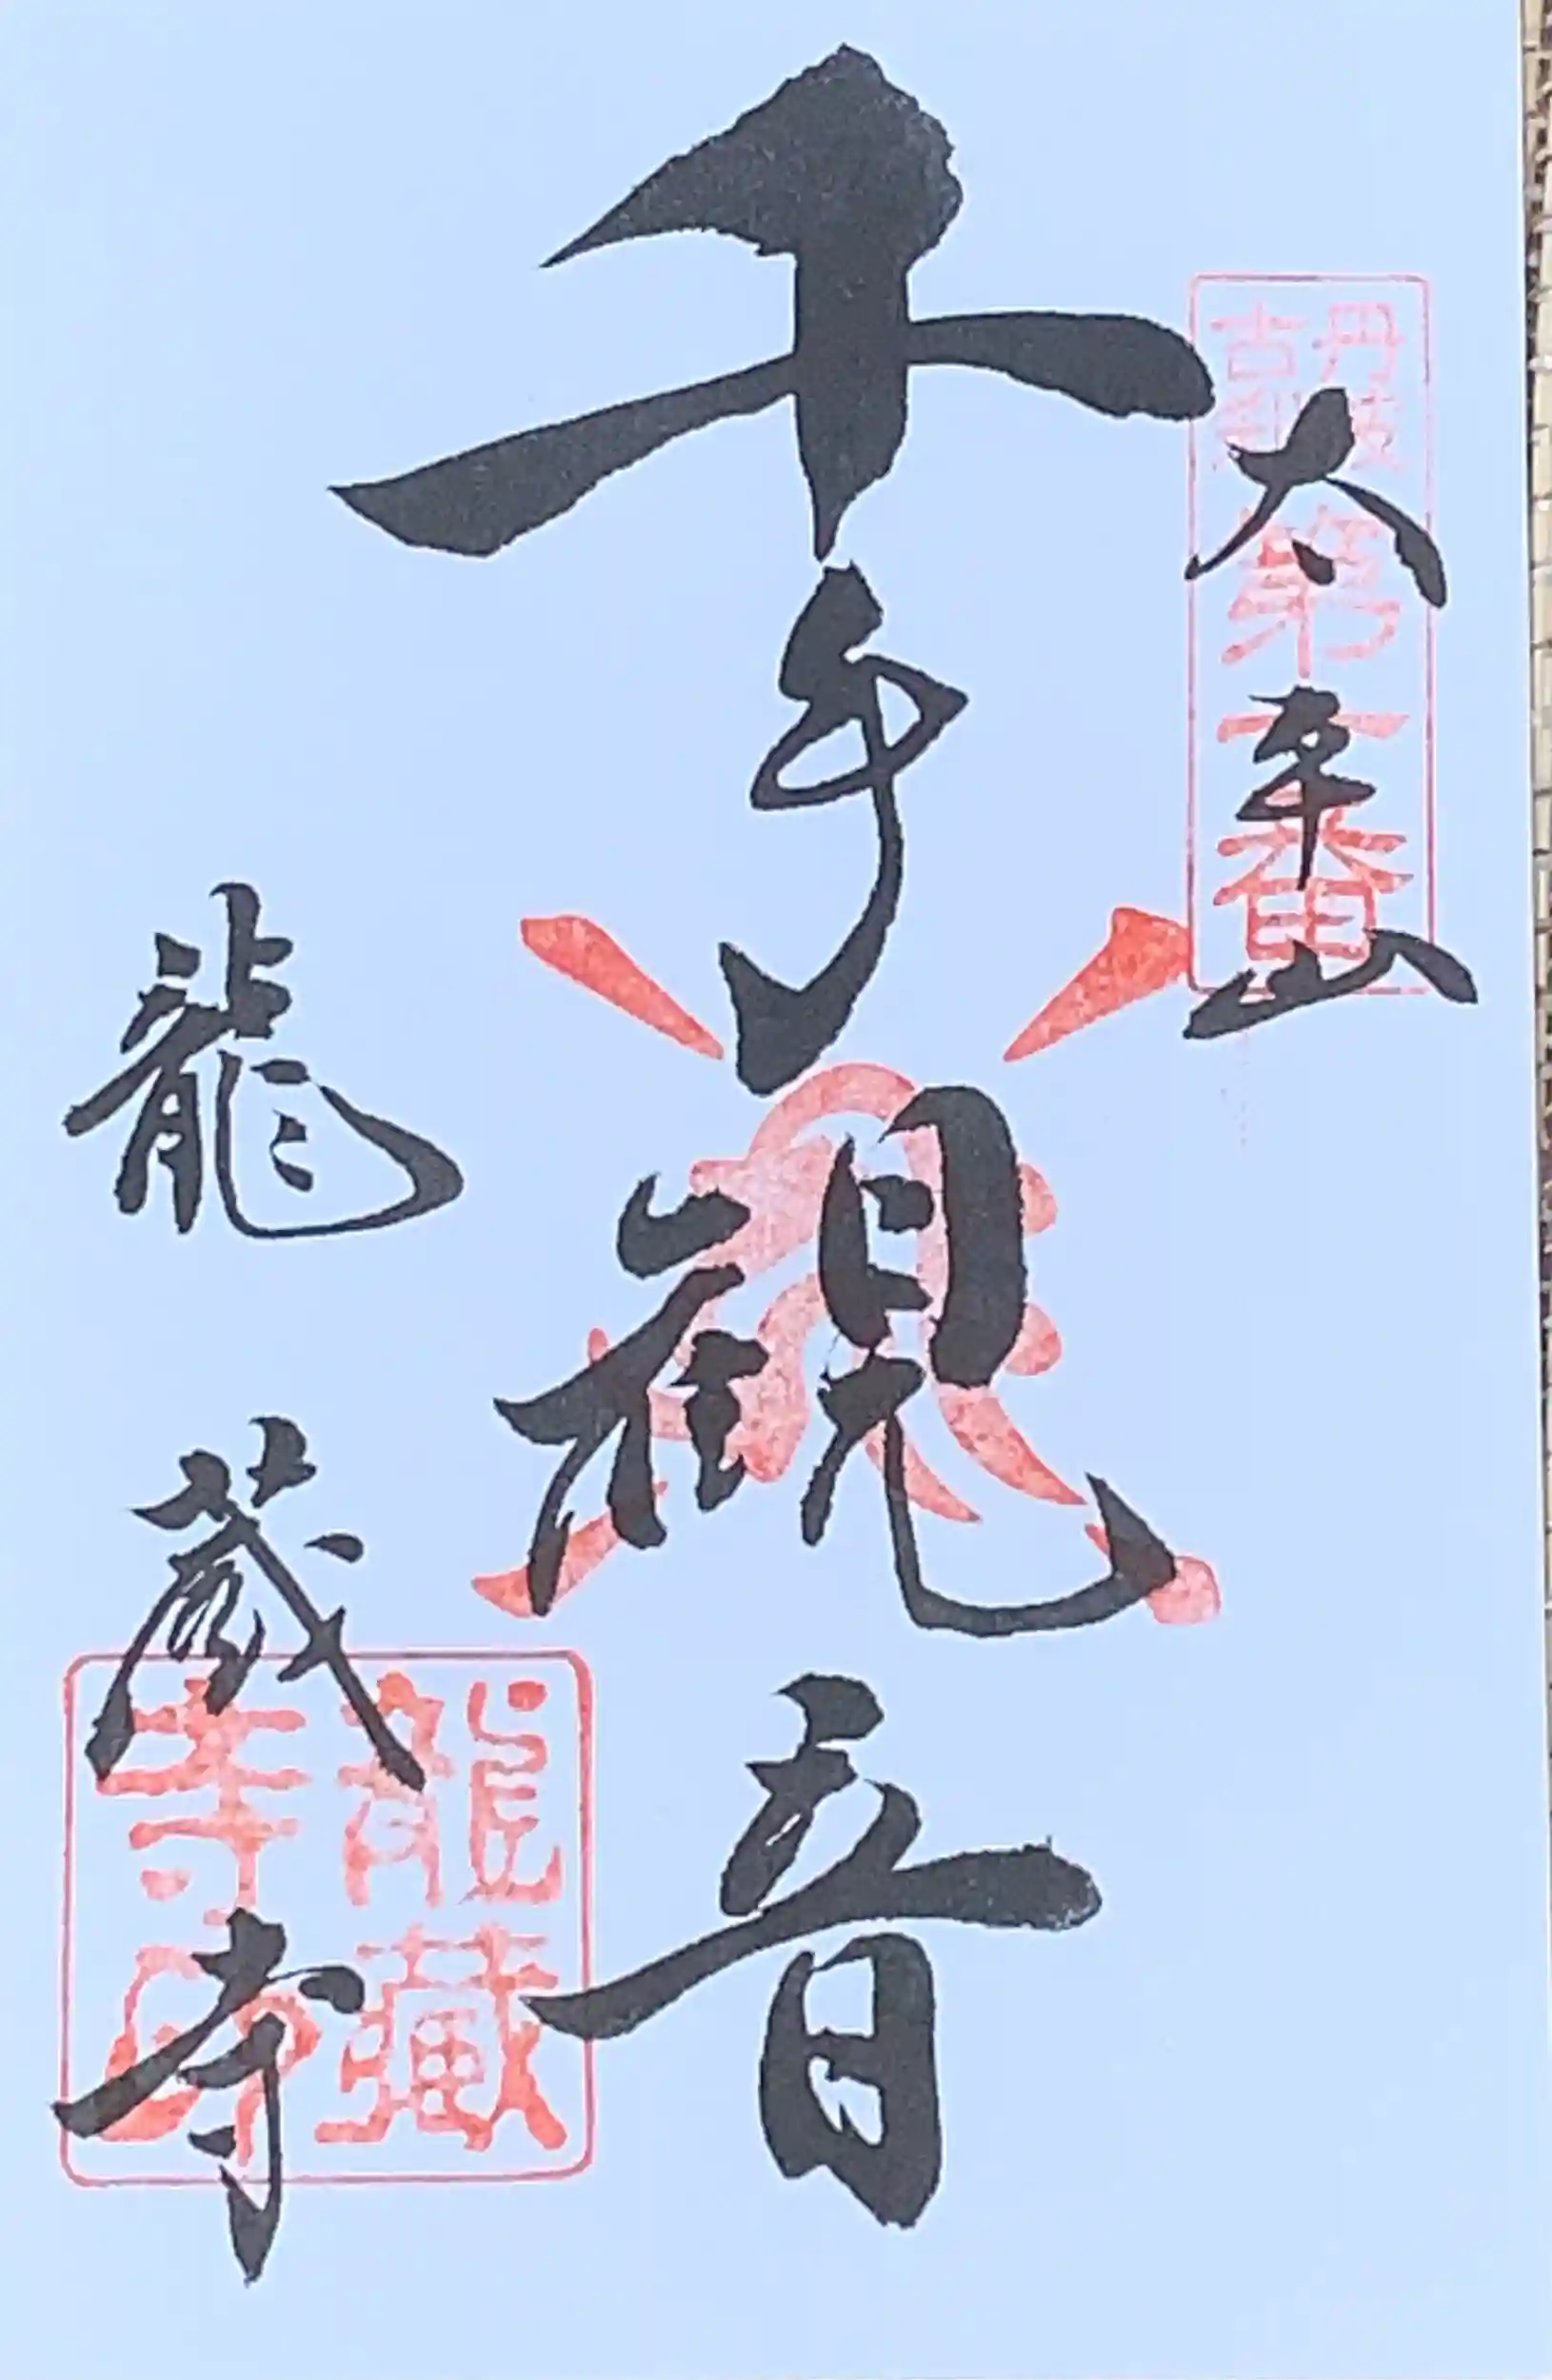 丹波
古刹
第
番
太平山
千手観音
龍蔵寺
龍藏
寺印